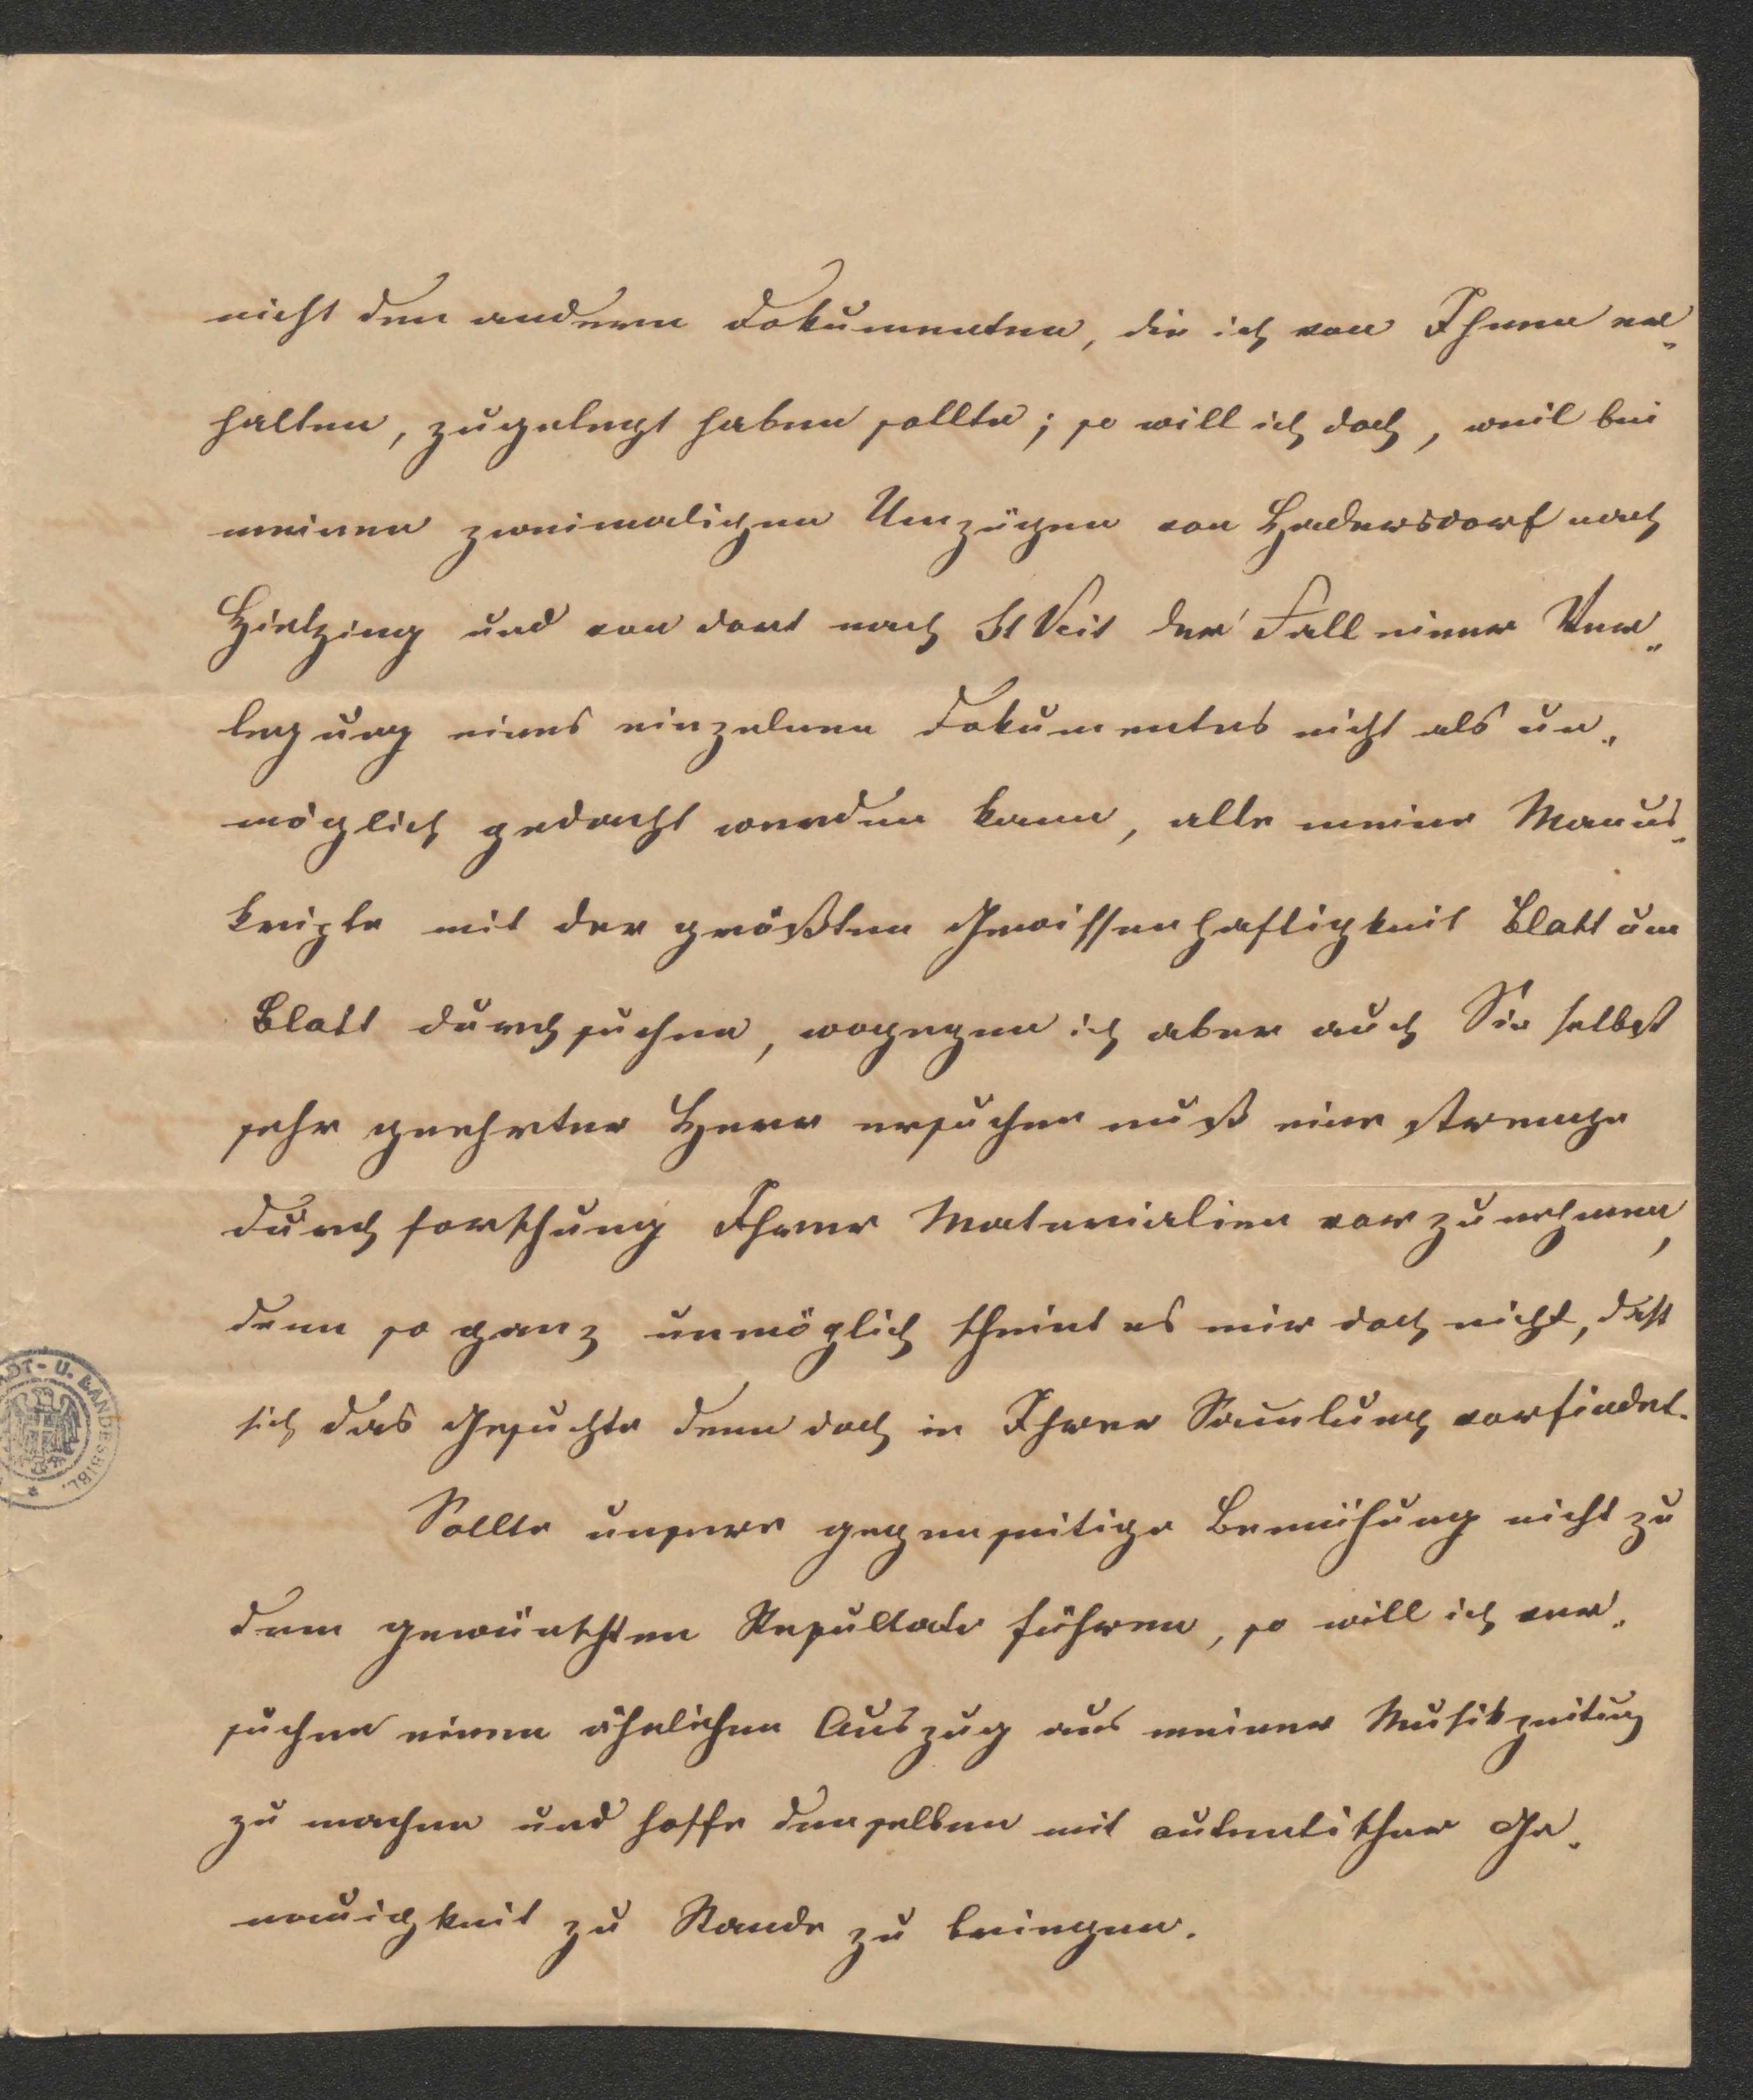 nicht den andern Dokumenten, die ich von Ihnen er-
halten, zugelegt haben sollte; so will ich doch, weil bei
meinen zweimaligen Umzügen von Hadersdorf nach
Hietzing und von dort nach St Veit der Fall einer Ver-
legung eines einzelnen Dokumentes nicht als un-
möglich gedacht werden kann, alle meine Manus-
kripte mit der größten Gewissenhaftigkeit Blatt um
Blatt durchsuchen, wogegen ich aber auch Sie selbst
sehr geehrter Herr ersuchen muß eine strenge
Durchforschung Ihrer Materialien vorzunehmen,
denn so ganz unmöglich scheint es mir doch nicht, daß
sich das Gesuchte denn doch in Ihrer Samlung vorfindet.
Sollte unsere gegenseitige Bemühung nicht zu
dem gewünschten Resultate führen, so will ich ver-
suchen einen ähnlichen Auszug aus meiner Musikzeitung
zu machen und hoffe denselben mit autentischer Ge-
nauigkeit zu Stande zu bringen.
ADT- U. LANDESBIBL.